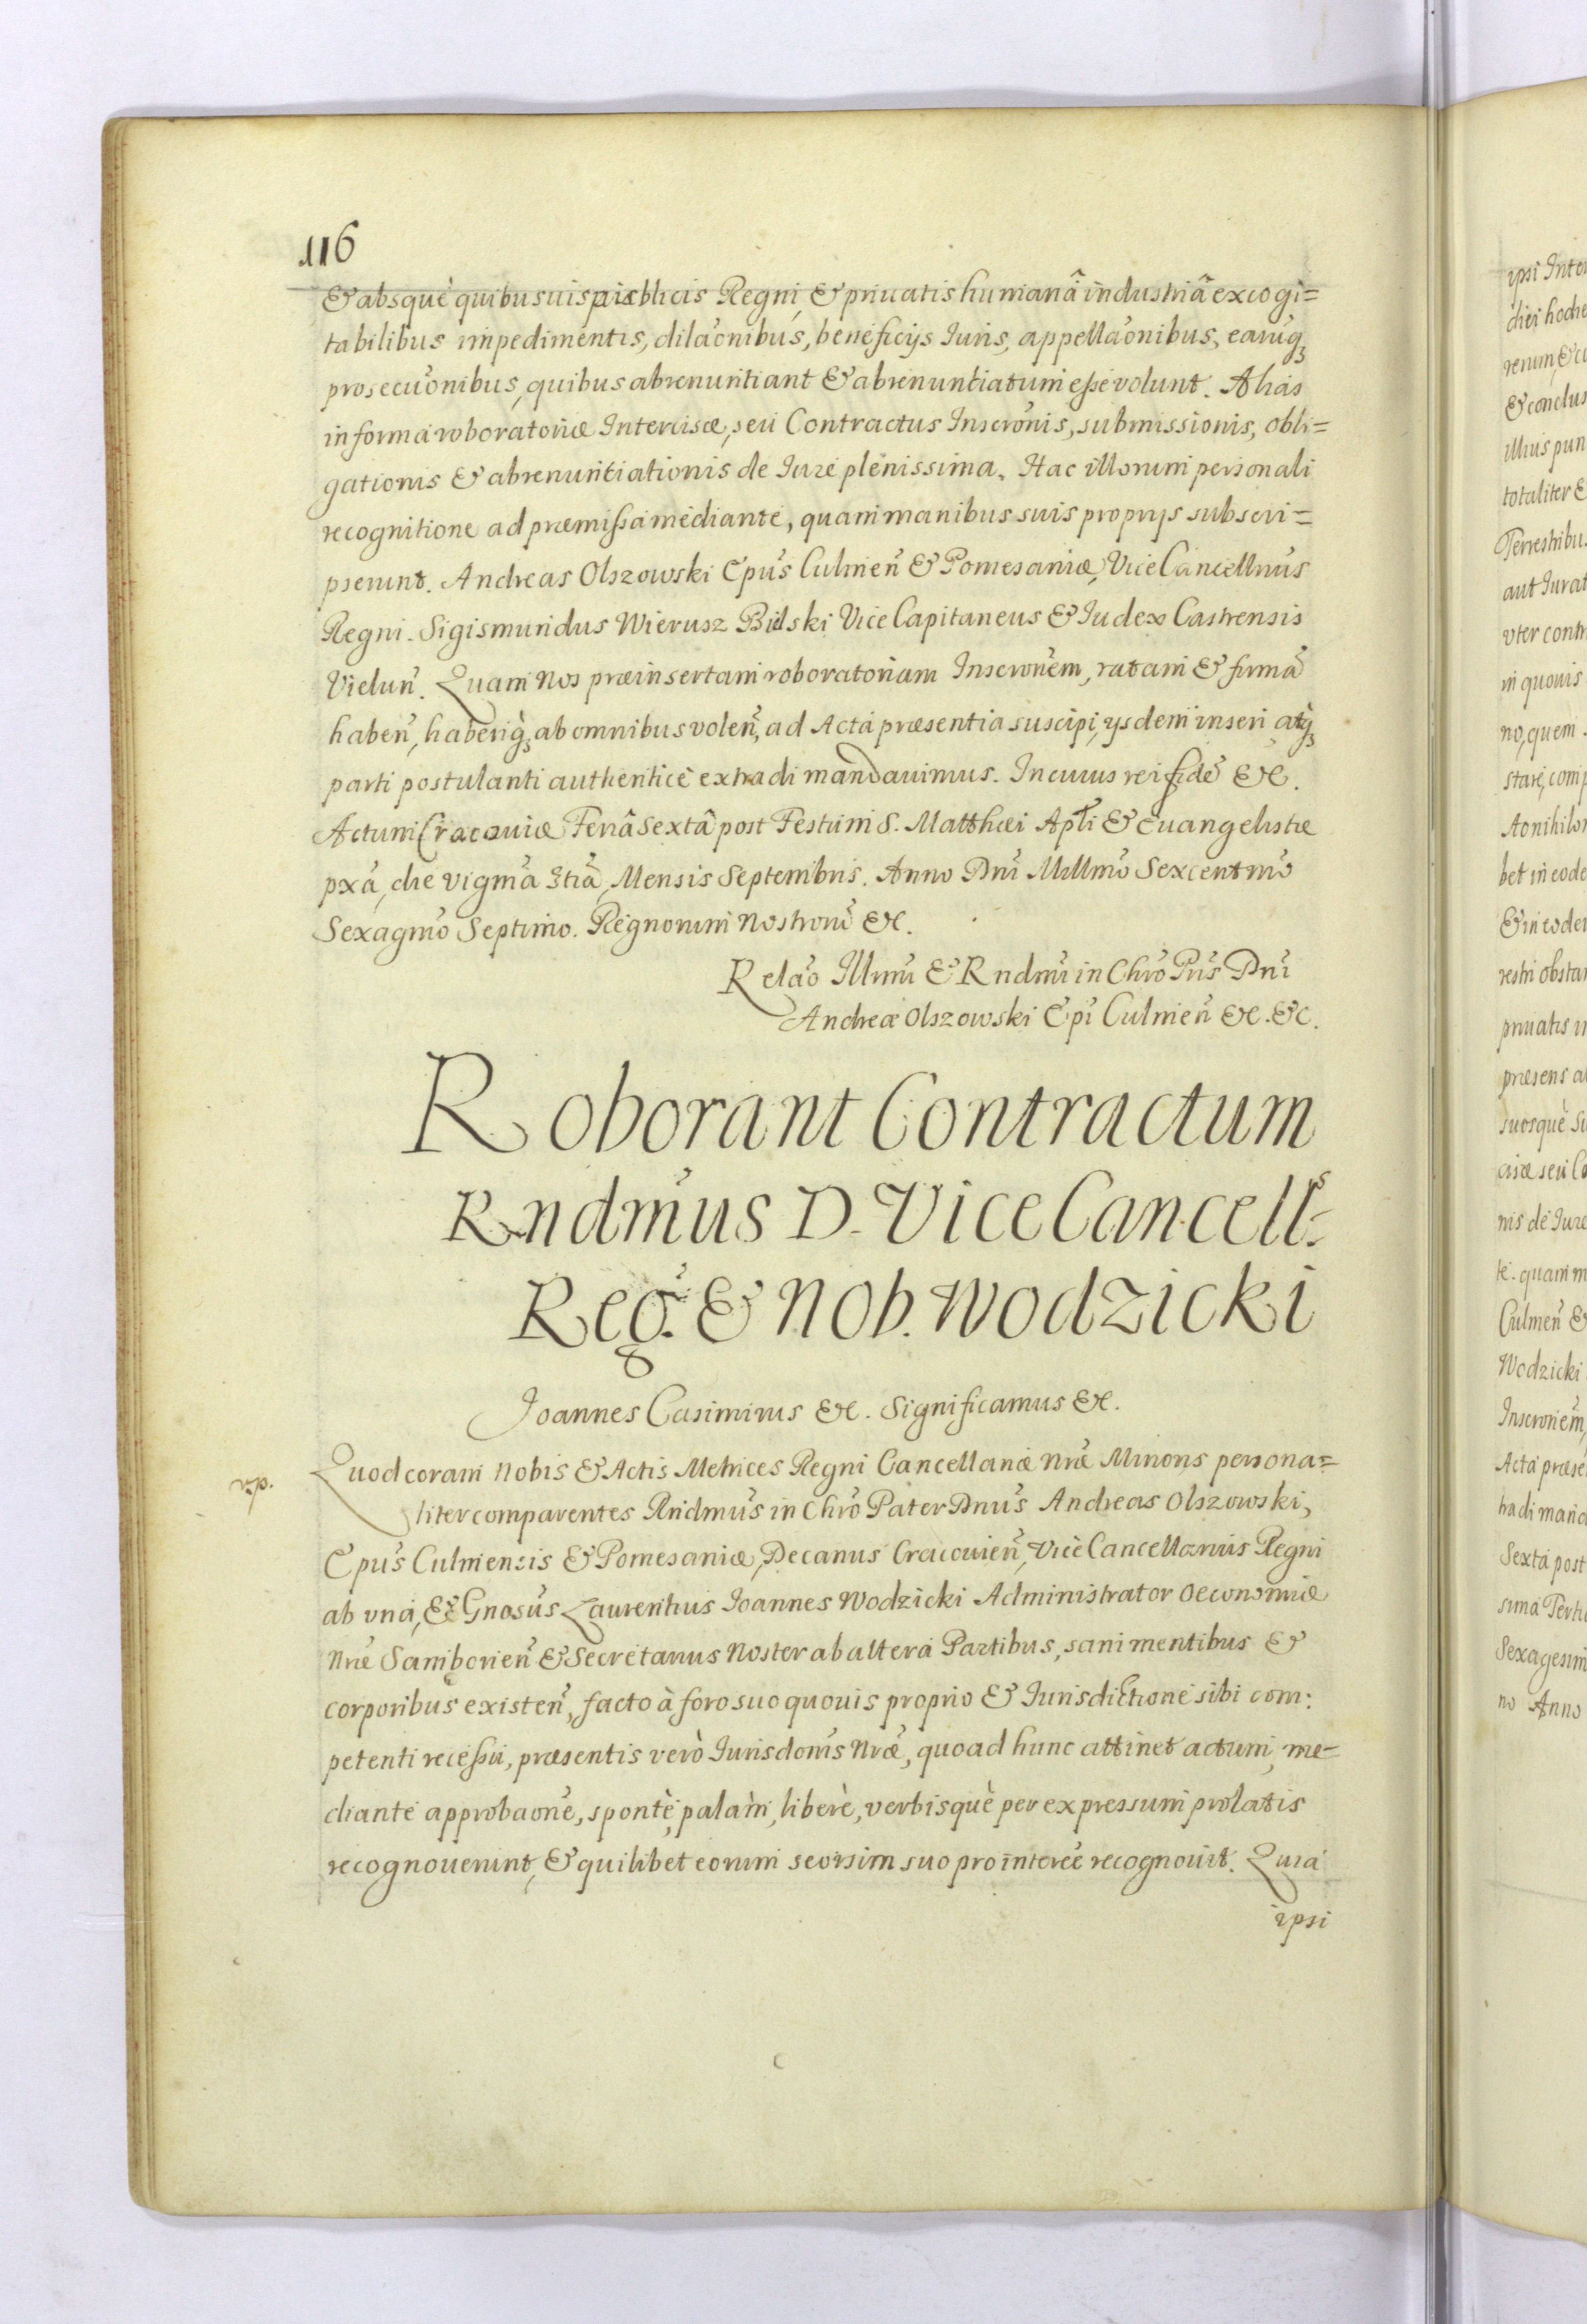 116
& absquè quibusuis publicis Regni, & priuatis humanâ industriâ excogi=
tabilibus impedimentis, dilaõnibus, beneficijs Iuris, appellaõnibus, earũq₃
prosecuõnibus, quibus abrenuntiant & abrenuntiatum eſse volunt. Alias
in forma roboratoriæ Intercisæ, seu Contractus Inscrõnis, submissionis, obli=
gationis & abrenuntiationis de Iure plenissima. Hac illorum personali
recognitione ad præmiſsa mediante, quam manibus suis proprijs subscri=
pserunt. Andreas Olszowski Epũs Culmeñ & Pomesaniæ, ViceCancellriũs
Regni. Sigismundus Wierusz Bielski Vice Capitaneus & Iudex Castrensis
Vieluñ. Quam Nos præinsertam roboratoriam Inscronẽm, ratam & firmã
habeñ, haberiq̀₃ ab omnibus voleñ, ad Acta præsentia suscipi, ijsdem inseri atq̀₃
parti postulanti authenticè extradi mandauimus. In cuius rei fidẽ &c.
Actum Cracouiæ Feriâ Sextâ post Festum S. Matthæi Apłi & Euangelistæ
pxã, die vigmã 3tiã, Mensis Septembris. Anno Dñi Millmõ Sexcentmõ
Sexagmõ Septimo. Regnorum Nostrorũ &c.
Relaõ Illmi & Rndmi in Chrõ Pris Dñi
Andreæ Olszowski Epĩ Culmeñ &c. &c.
Roborant Contractum
Rndmũs D. ViceCancellˢ:
Reg̃. & Nob. Wodzicki
Joannes Casimirus &c. Significamus &c.
Quod coram Nobis & Actis Metrices Regni Cancellariæ Nræ Minoris persona=
rp.
liter comparentes Rndmũs in Chrõ Pater Dnũs Andreas Olszowski,
Epũs Culmensis & Pomesaniæ, Decanus Cracouieñ, ViceCancellarius Regni
ab vna, & Gnosũs Laurentius Ioannes Wodzicki Administrator Oeconomiæ
Nræ Samborieñ & Secretarius Noster ab altera Partibus, sani mentibus &
corporibus existeñ, facto à foro suo quouis proprio & Iurisdictione sibi com:
petenti receſsu, præsentis verò Iurisdonĩs Nræ, quoad hunc attinet actum, me=
diante approbaonẽ, spontè, palàm, liberè, verbisquè per expressum prolatis
recognouerunt, & quilibet eorum seorsim suo pro interẽe recognouit. Quia
ipsi